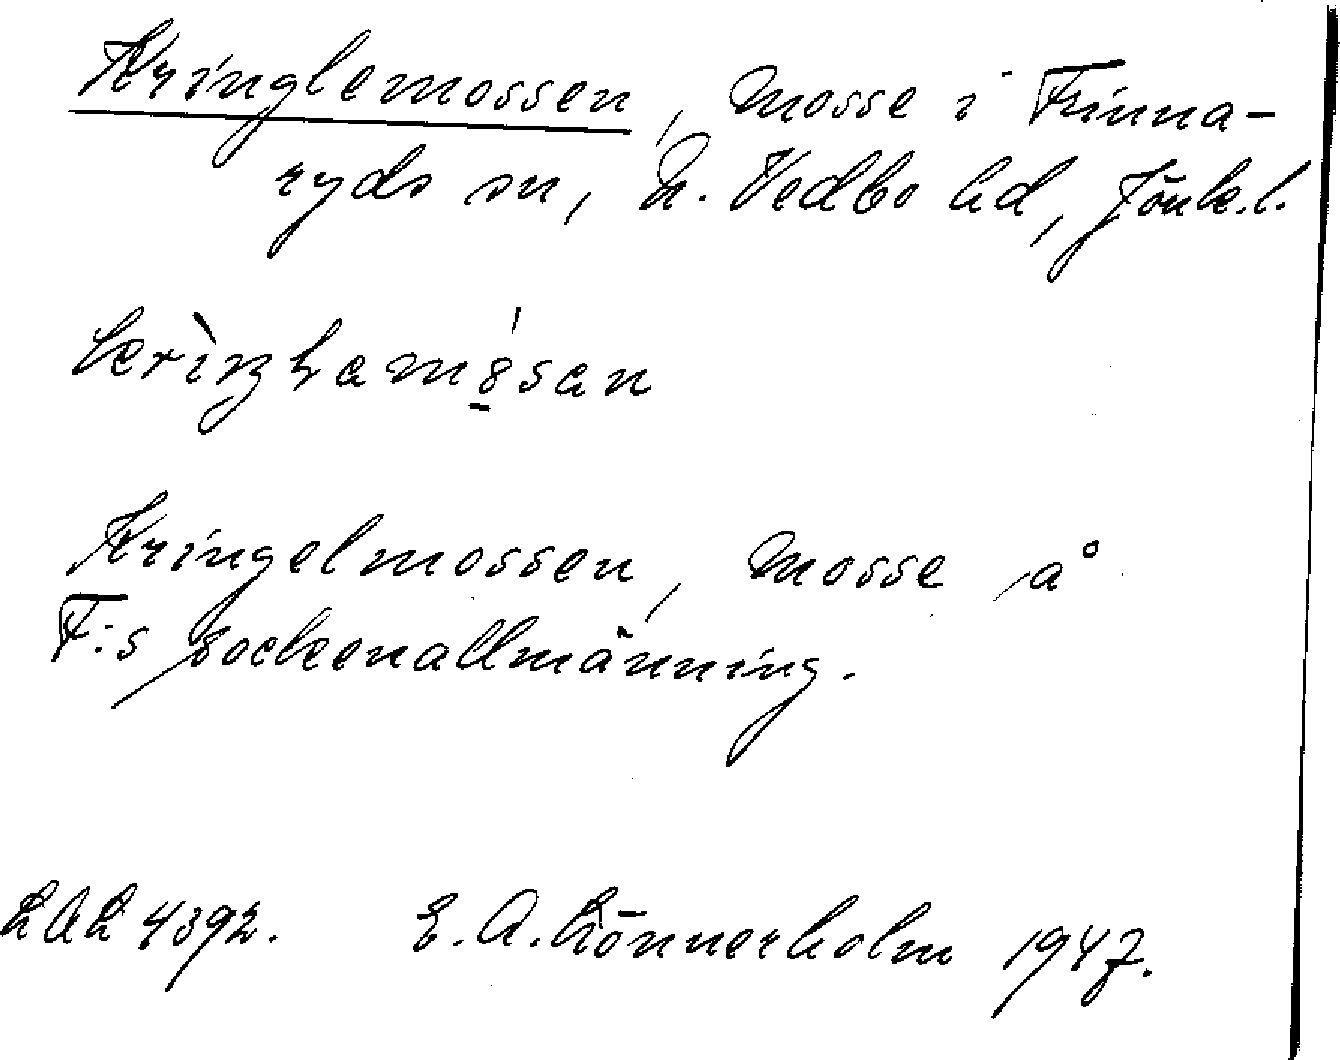 Kringlemossen, mosse i Frinna-
ryds sn, N. Vedbo hd, Jönk.l.
Kringelmossen, mosse på
F:s sockenallmänning.
LAL 4392. E. A. Lönnerholm 1947.